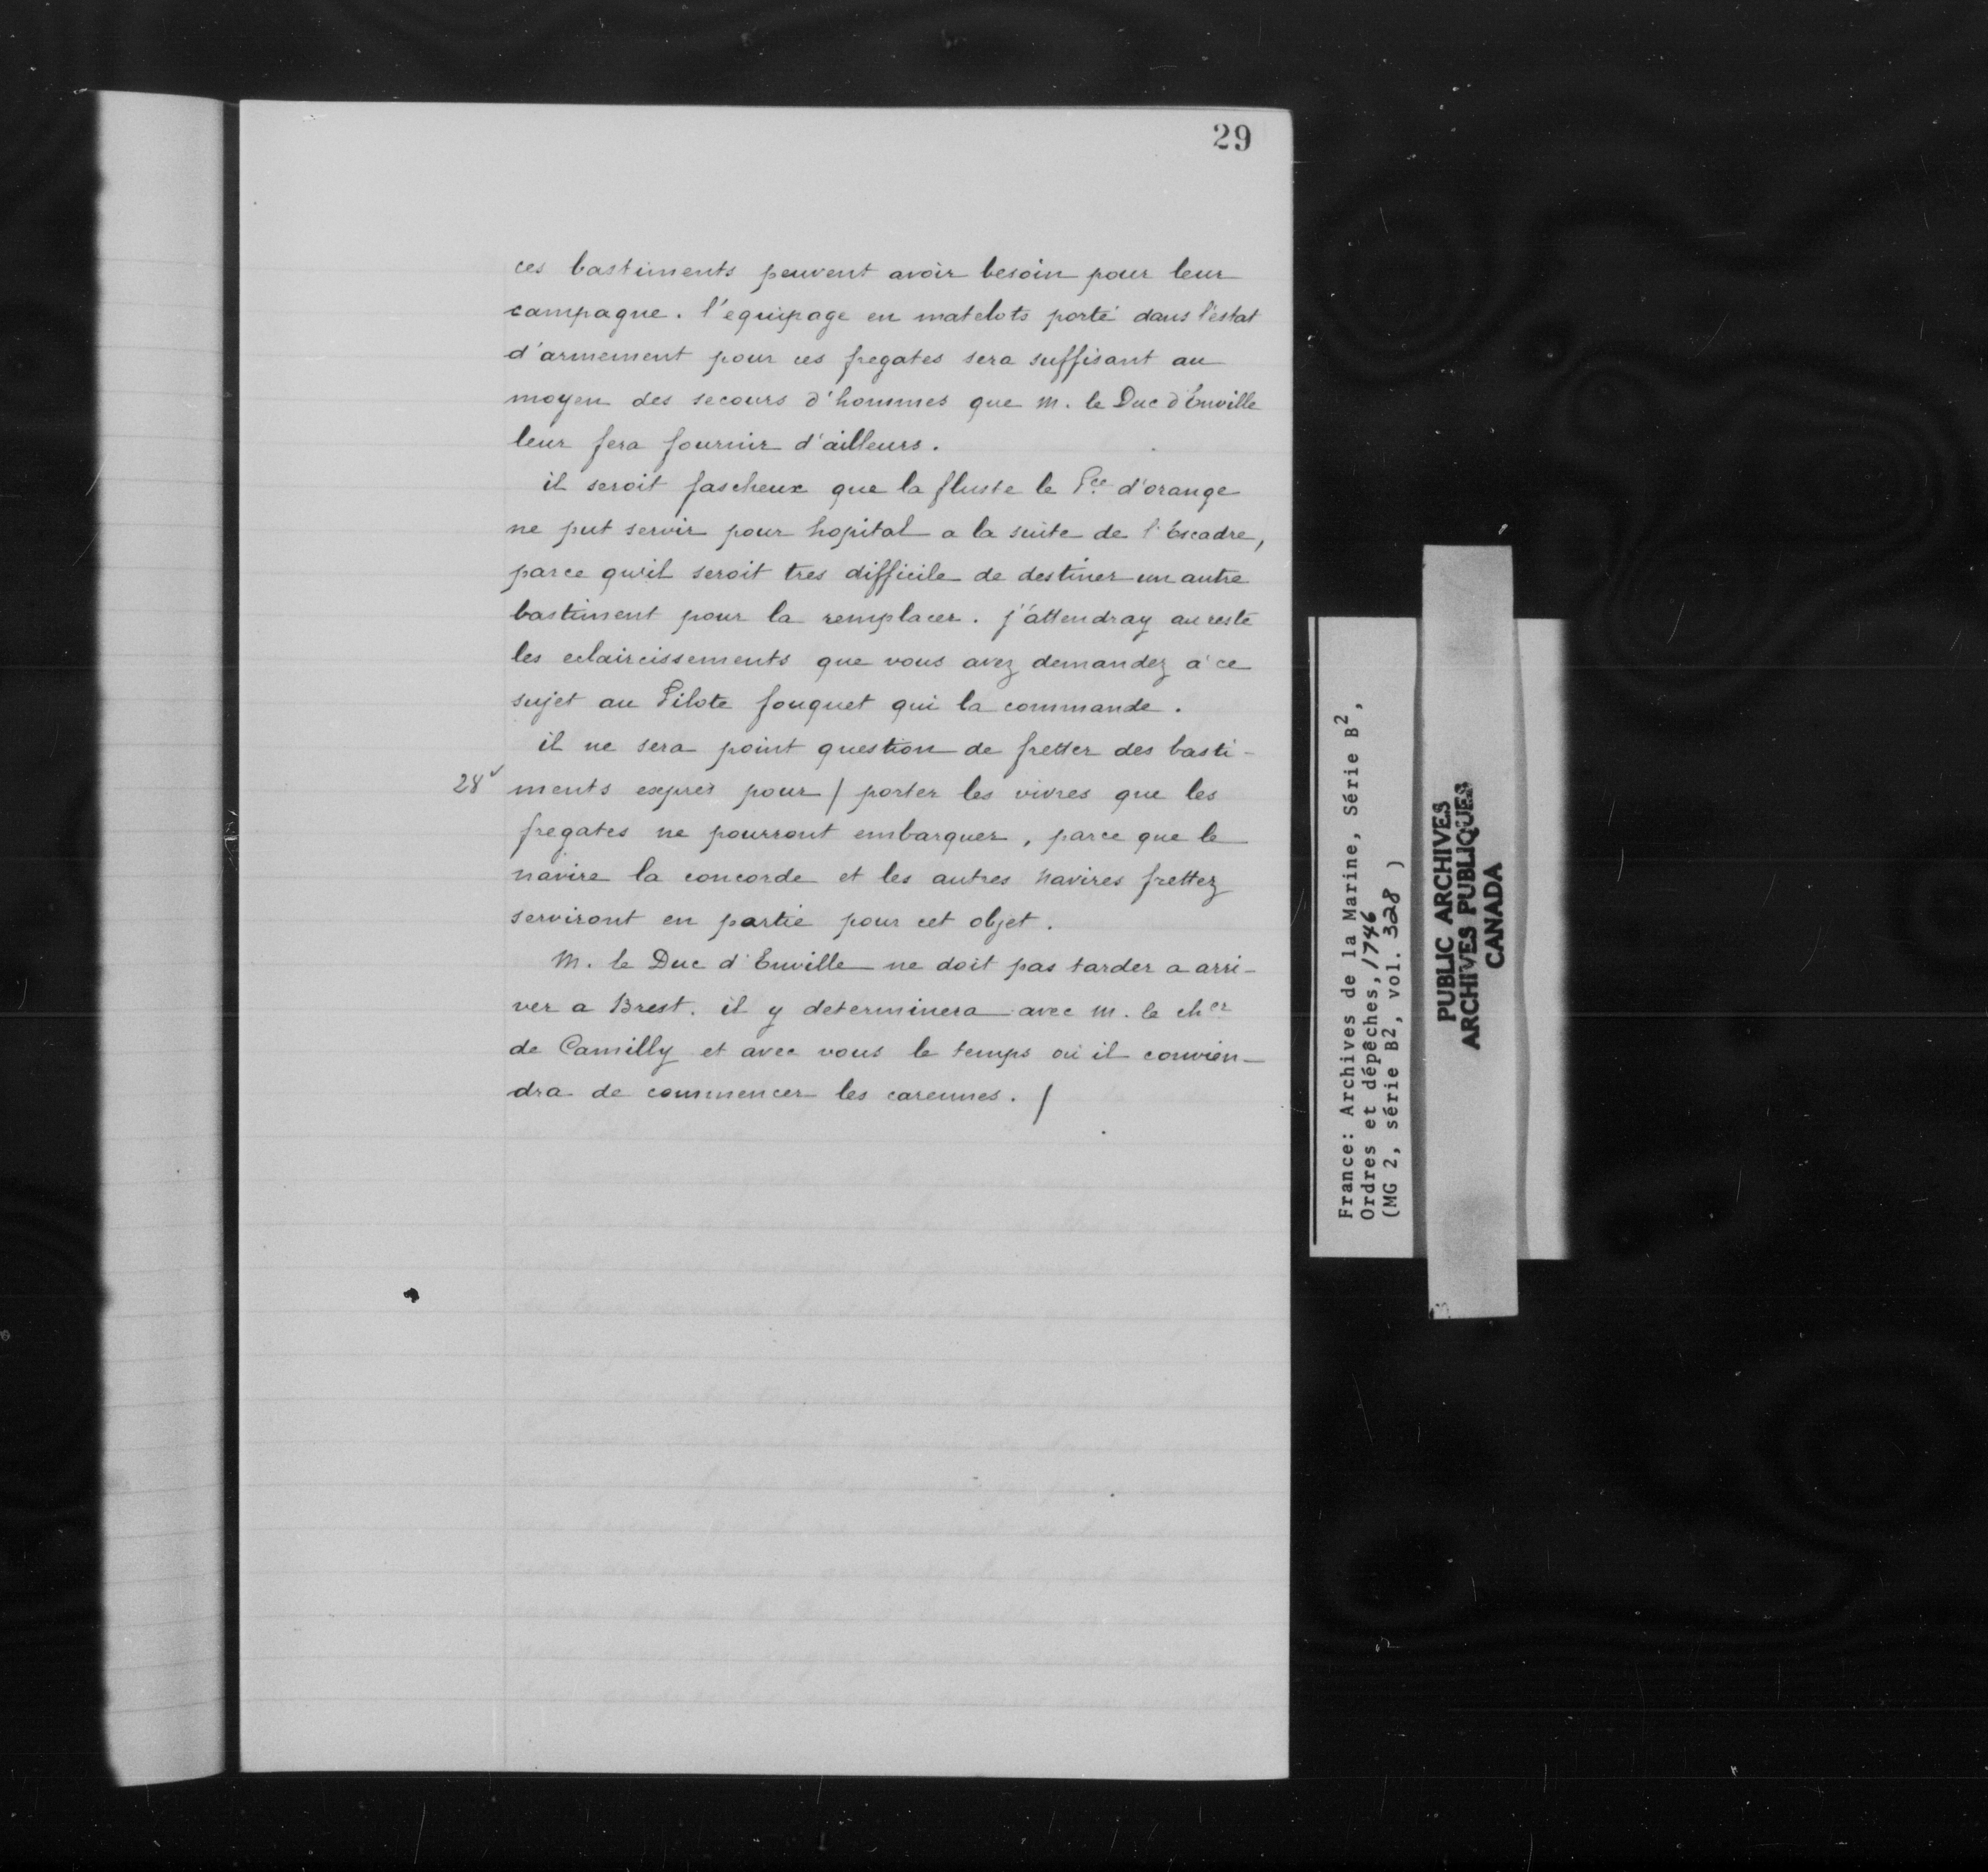 29
ces bastiments peuvent avoir besoin pour leur
campagne. l'equipage en matelots porté dans l'estat
d'armement pour ces fregates sera suffisant au
moyen des secours d'hommes que M. le Duc d'Enville
leur fera fournir d'ailleurs.
il seroit fascheux que la fluste le Pce d'orange
ne put servir pour hopital a la suite de l'Escadre,
parce qu'il seroit tres difficile de destiner un autre
bastiment pour la remplacer. j'attendray au reste
les eclaircissements que vous avez demandez à ce
sujet au Pilote fouquet qui la commande.
il ne sera point question de fretter des basti-
28v ments exprès pour / porter les vivres que les
fregates ne pourront embarquer, parce que le
navire la concorde et les autres navires frettez
serviront en partie pour cet objet.
M. le Duc d'Enville ne doit pas tarder a arri-
ver a Brest. il y determinera avec M. le cher
de Camilly et avec vous le temps où il convien-
dra de commencer les carennes. /
France: Archives de la Marine, Série B2,
Ordres et dépêches, 1746
(MG 2, série B2, vol. 328 )
PUBLIC ARCHIVES
ARCHIVES PUBLIQUES
CANADA